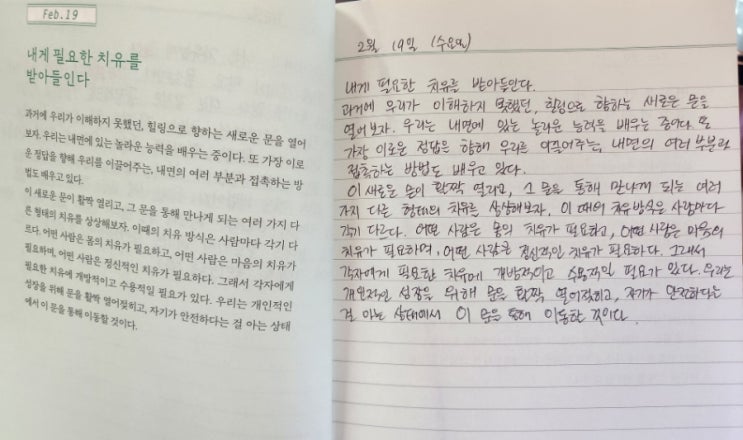 Feb.19
내게 필요한 치유를
받아들인다
과거에 우리가 이해하지 못했던, 힐링으로 향하는 새로운 문을 열어
보자. 우리는 내면에 있는 놀라운 능력을 배우는 중이다. 또 가장 이로
운 정답을 향해 우리를 이끌어주는, 내면의 여러 부분과 접촉하는 방
법도 배우고 있다.
이 새로운 문이 활짝 열리고, 그 문을 통해 만나게 되는 여러 가지 다
른 형태의 치유를 상상해보자. 이때의 치유 방식은 사람마다 각기 다
르다. 어떤 사람은 몸의 치유가 필요하고, 어떤 사람은 마음의 치유가
필요하며, 어떤 사람은 정신적인 치유가 필요하다. 그래서 각자에게
필요한 치유에 개방적이고 수용적일 필요가 있다. 우리는 개인적인
성장을 위해 문을 활짝 열어젖히고, 자기가 안전하다는 걸 아는 상태
에서 이 문을 통해 이동할 것이다.
2월 19일 (수요일)
내게 필요한 치유를 받아들인다.
과거에 우리가 이해하지 못했던, 힐링으로 향하는 새로운 문을
열어보자. 우리는 내면에 있는 놀라운 능력을 배우는 중이다. 또
가장 이로운 정답을 향해 우리를 이끌어주는, 내면의 여러 부분과
접촉하는 방법도 배우고 있다.
이 새로운 문이 활짝 열리고, 그 문을 통해 만나게 되는 여러
가지 다른 형태의 치유를 상상해보자. 이 때의 치유방식은 사람마다
각기 다르다. 어떤 사람은 몸의 치유가 필요하고, 어떤 사람은 마음의
치유가 필요하며, 어떤 사람은 정신적인 치유가 필요하다. 그래서
각자에게 필요한 치유에 개방적이고 수용적일 필요가 있다. 우리는
개인적인 성장을 위해 문을 활짝 열어젖히고, 자기가 안전하다는
걸 아는 상태에서 이 문을 통해 이동할 것이다.